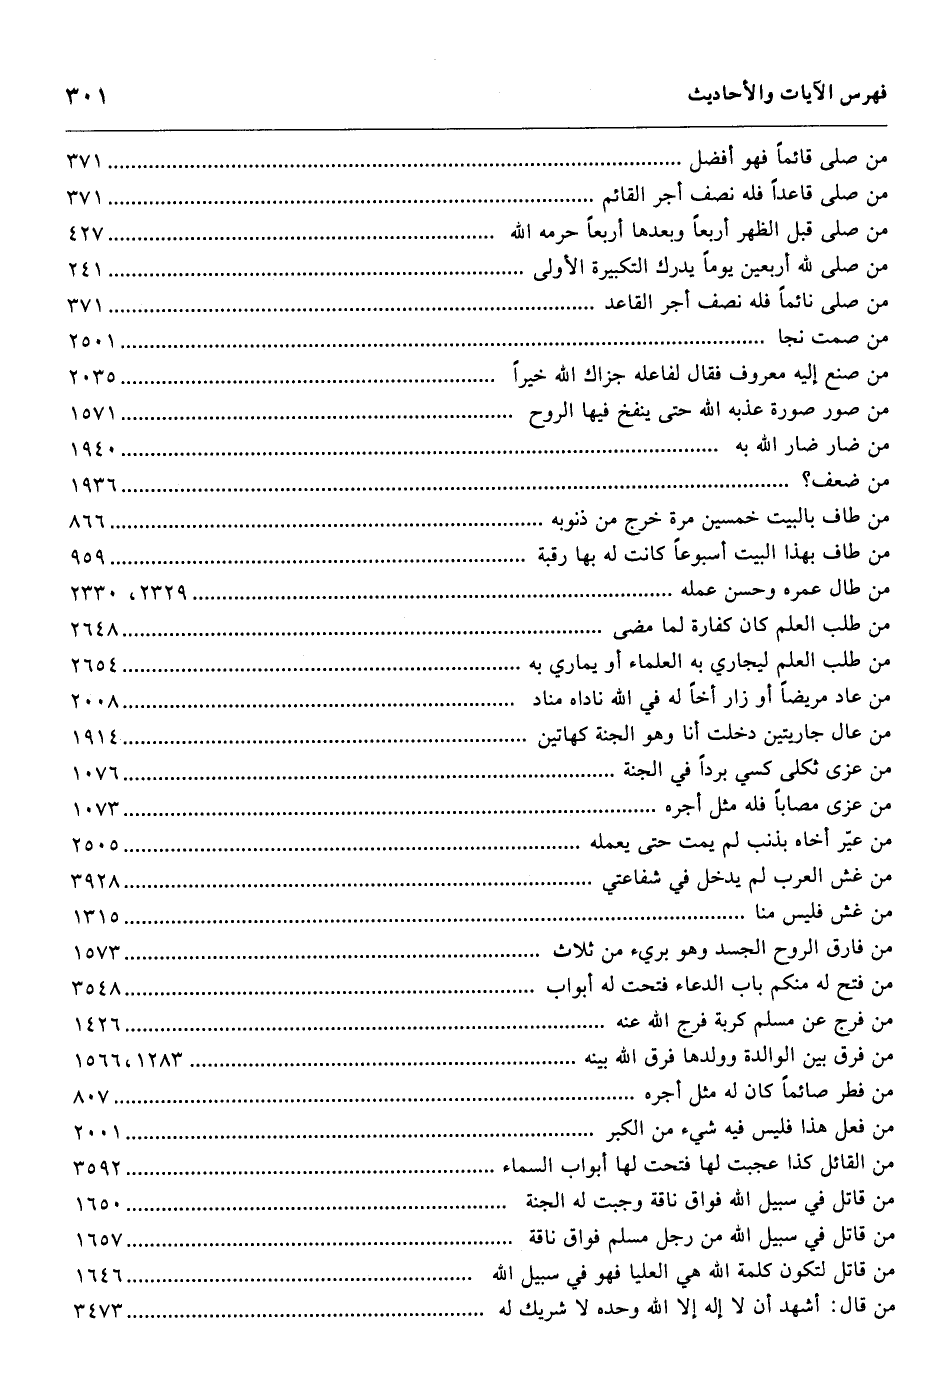 فهرس الآيات والأحاديث ٣٠١
من صلى قائماً فهو أفضل ٣٧١
من صلى قاعداً فله نصف أجر القائم ٣٧١
من صلى قبل الظهر أربعاً وبعدها أربعاً حرمه الله ٤٢٧
من صلى لله أربعين يوماً يدرك التكبيرة الأولى ٢٤١
من صلى نائماً فله نصف أجر القاعد ٣٧١
من صمت نجا ٢٥٠١
من صنع إليه معروف فقال لفاعله جزاك الله خيراً ٢٠٣٥
من صور صورة عذبه الله حتى ينفخ فيها الروح ١٥٧١
من ضار ضار الله به ١٩٤٠
من ضعف؟ ١٩٣٦
من طاف بالبيت خمسين مرة خرج من ذنوبه ٨٦٦
من طاف بهذا البيت أسبوعاً كانت له بها رقبة ٩٥٩
من طال عمره وحسن عمله ٢٣٢٩، ٢٣٣٠
من طلب العلم كان كفارة لما مضى ٢٦٤٨
من طلب العلم ليجاري به العلماء أو يماري به ٢٦٥٤
من عاد مريضاً أو زار أخاً له في الله ناداه مناد ٢٠٠٨
من عال جاريتين دخلت أنا وهو الجنة كهاتين ١٩١٤
من عزى ثكلى كسي برداً في الجنة ١٠٧٦
من عزى مصاباً فله مثل أجره ١٠٧٣
من عيّر أخاه بذنب لم يمت حتى يعمله ٢٥٠٥
من غش العرب لم يدخل في شفاعتي ٣٩٢٨
من غش فليس منا ١٣١٥
من فارق الروح الجسد وهو بريء من ثلاث ١٥٧٣
من فتح له منكم باب الدعاء فتحت له أبواب ٣٥٤٨
من فرج عن مسلم كربة فرج الله عنه ١٤٢٦
من فرق بين الوالدة وولدها فرق الله بينه ١٢٨٣، ١٥٦٦
من فطر صائماً كان له مثل أجره ٨٠٧
من فعل هذا فليس فيه شيء من الكبر ٢٠٠١
من القائل كذا عجبت لها فتحت لها أبواب السماء ٣٥٩٢
من قاتل في سبيل الله فواق ناقة وجبت له الجنة ١٦٥٠
من قاتل في سبيل الله من رجل مسلم فواق ناقة ١٦٥٧
من قاتل لتكون كلمة الله هي العليا فهو في سبيل الله ١٦٤٦
من قال: أشهد أن لا إله إلا الله وحده لا شريك له ٣٤٧٣